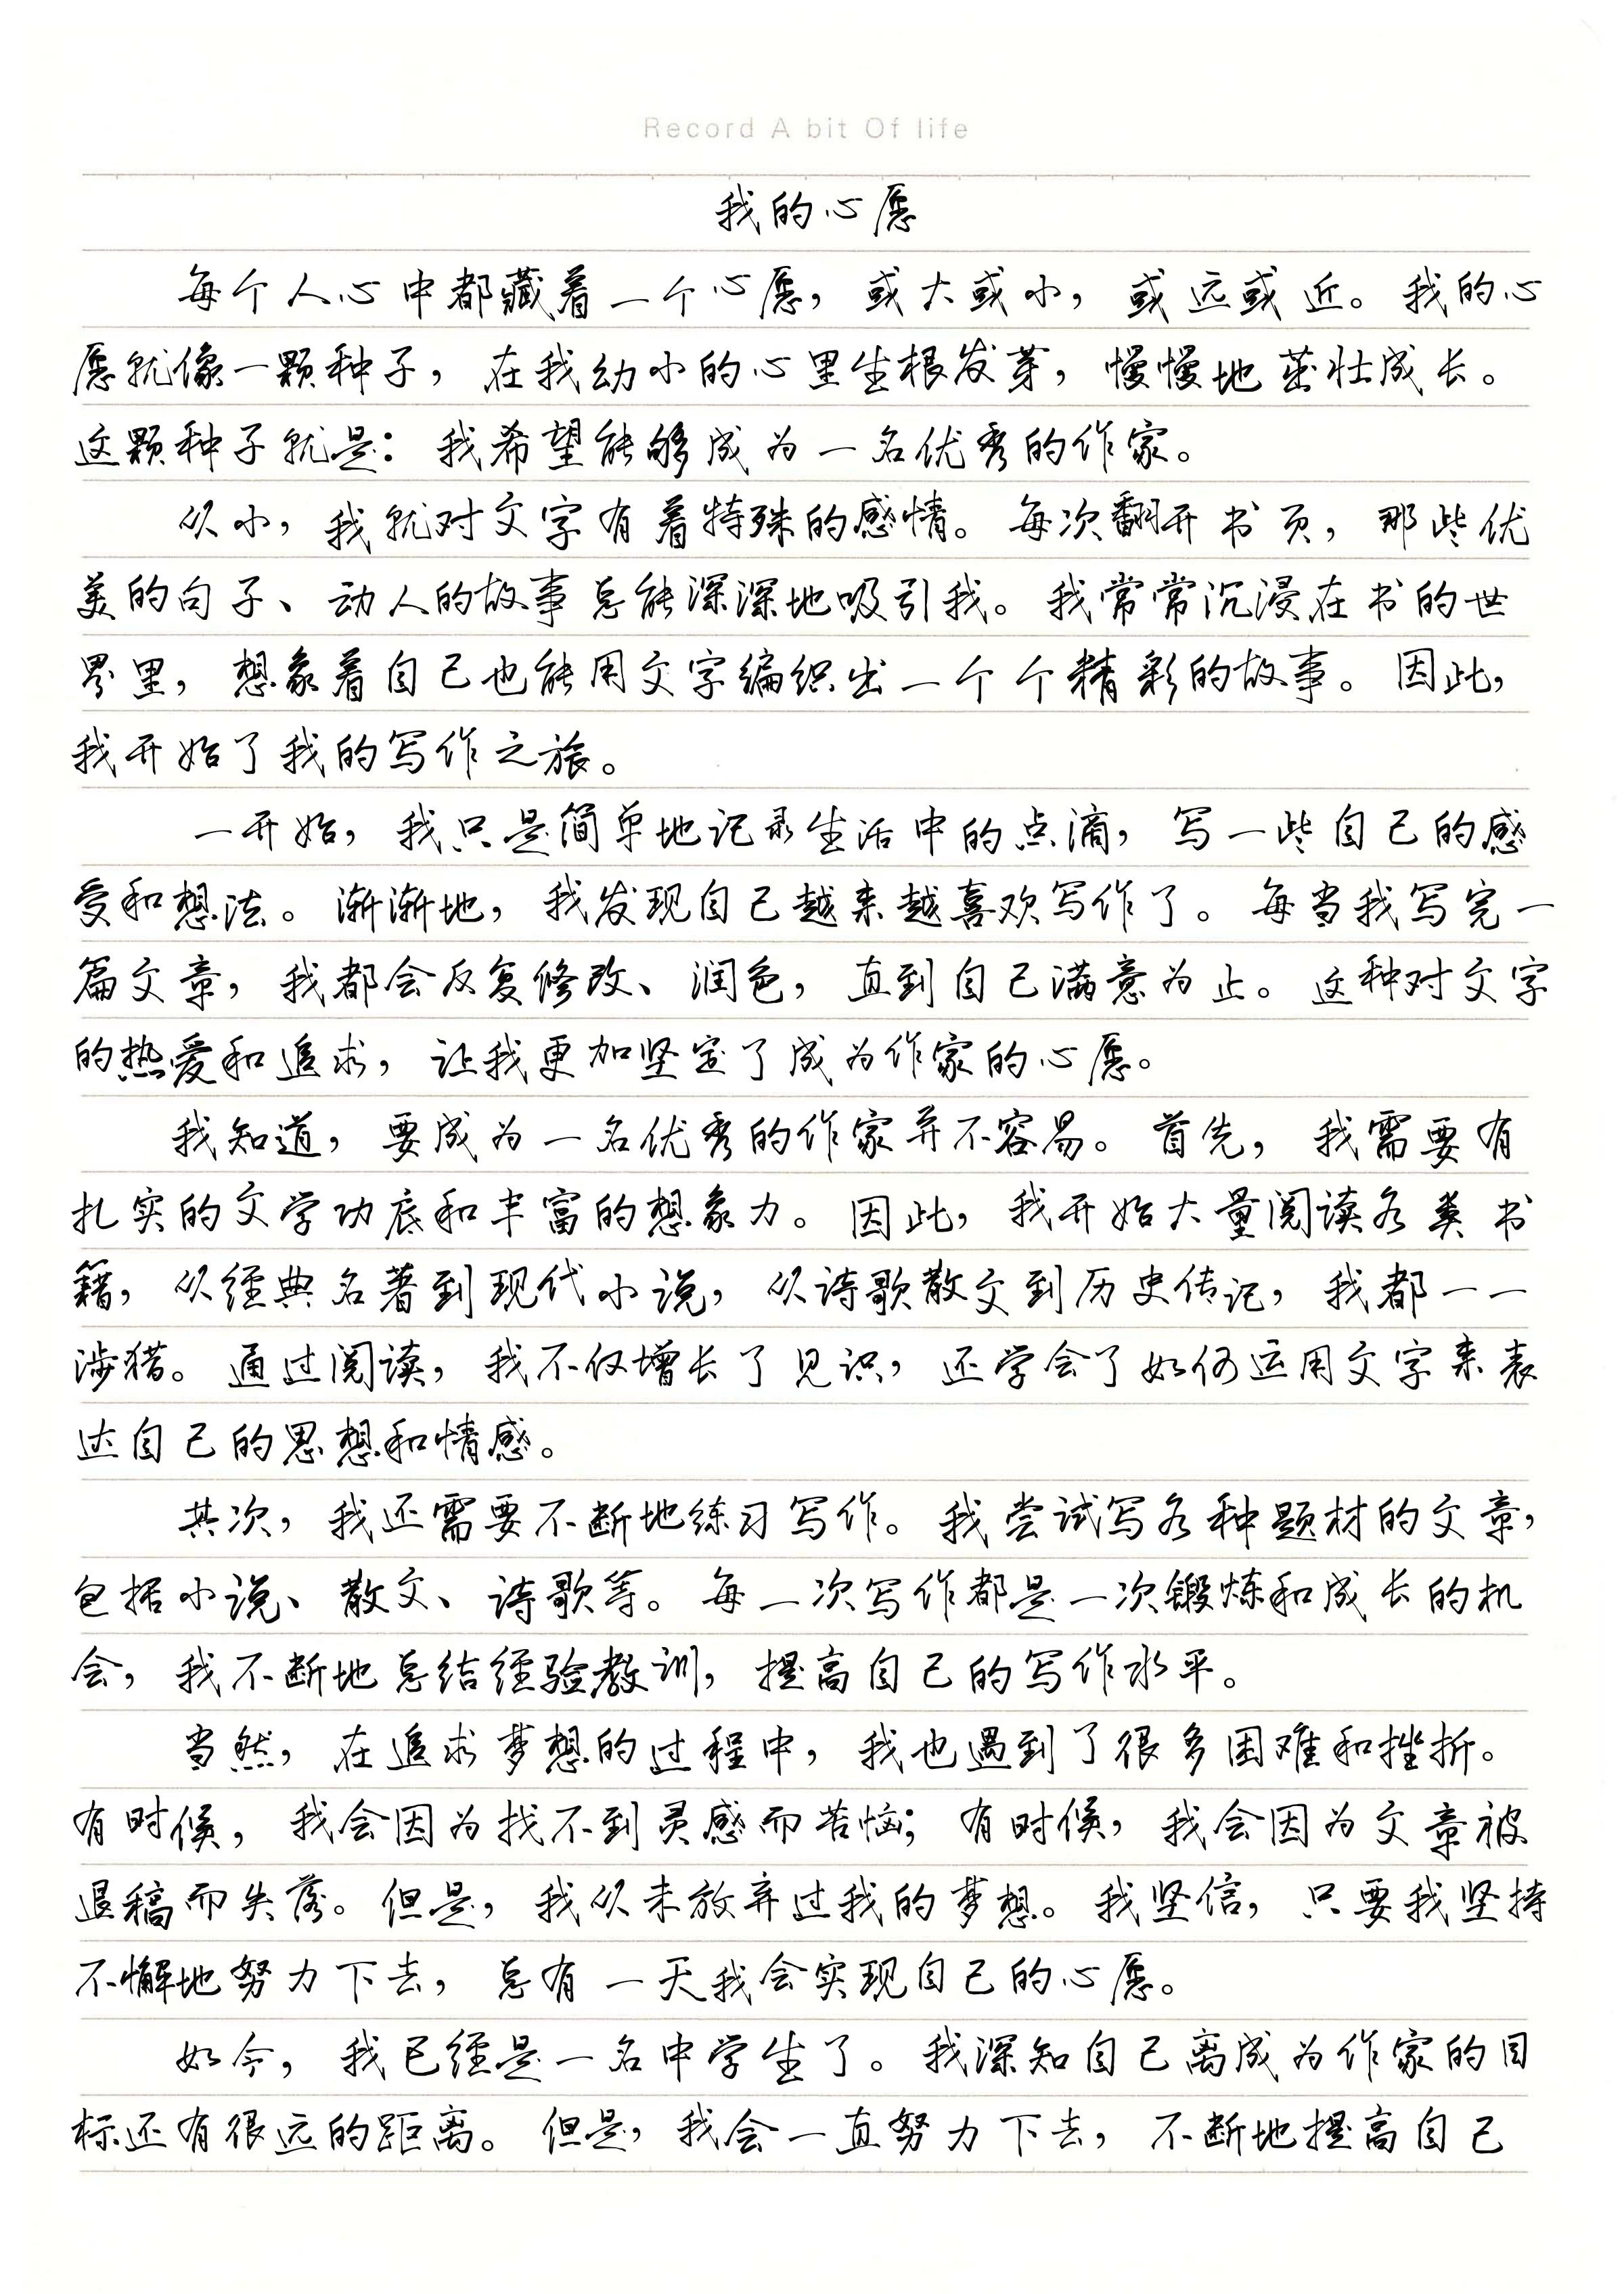 Record A bit Of life
我的心愿
每个人心中都藏着一个心愿，或大或小，或远或近。我的心
愿就像一颗种子，在我幼小的心里生根发芽，慢慢地茁壮成长。
这颗种子就是：我希望能够成为一名优秀的作家。
从小，我就对文字有着特殊的感情。每次翻开书页，那些优
美的句子、动人的故事总能深深地吸引我。我常常沉浸在书的世
界里，想象着自己也能用文字编织出一个个精彩的故事。因此，
我开始了我的写作之旅。
一开始，我只是简单地记录生活中的点滴，写一些自己的感
受和想法。渐渐地，我发现自己越来越喜欢写作了。每当我写完一
篇文章，我都会反复修改、润色，直到自己满意为止。这种对文字
的热爱和追求，让我更加坚定了成为作家的心愿。
我知道，要成为一名优秀的作家并不容易。首先，我需要有
扎实的文学功底和丰富的想象力。因此，我开始大量阅读各类书
籍，从经典名著到现代小说，从诗歌散文到历史传记，我都一一
涉猎。通过阅读，我不仅增长了见识，还学会了如何运用文字来表
达自己的思想和情感。
其次，我还需要不断地练习写作。我尝试写各种题材的文章，
包括小说、散文、诗歌等。每一次写作都是一次锻炼和成长的机
会，我不断地总结经验教训，提高自己的写作水平。
当然，在追求梦想的过程中，我也遇到了很多困难和挫折。
有时候，我会因为找不到灵感而苦恼；有时候，我会因为文章被
退稿而失落。但是，我从未放弃过我的梦想。我坚信，只要我坚持
不懈地努力下去，总有一天我会实现自己的心愿。
如今，我已经是一名中学生了。我深知自己离成为作家的目
标还有很远的距离。但是，我会一直努力下去，不断地提高自己